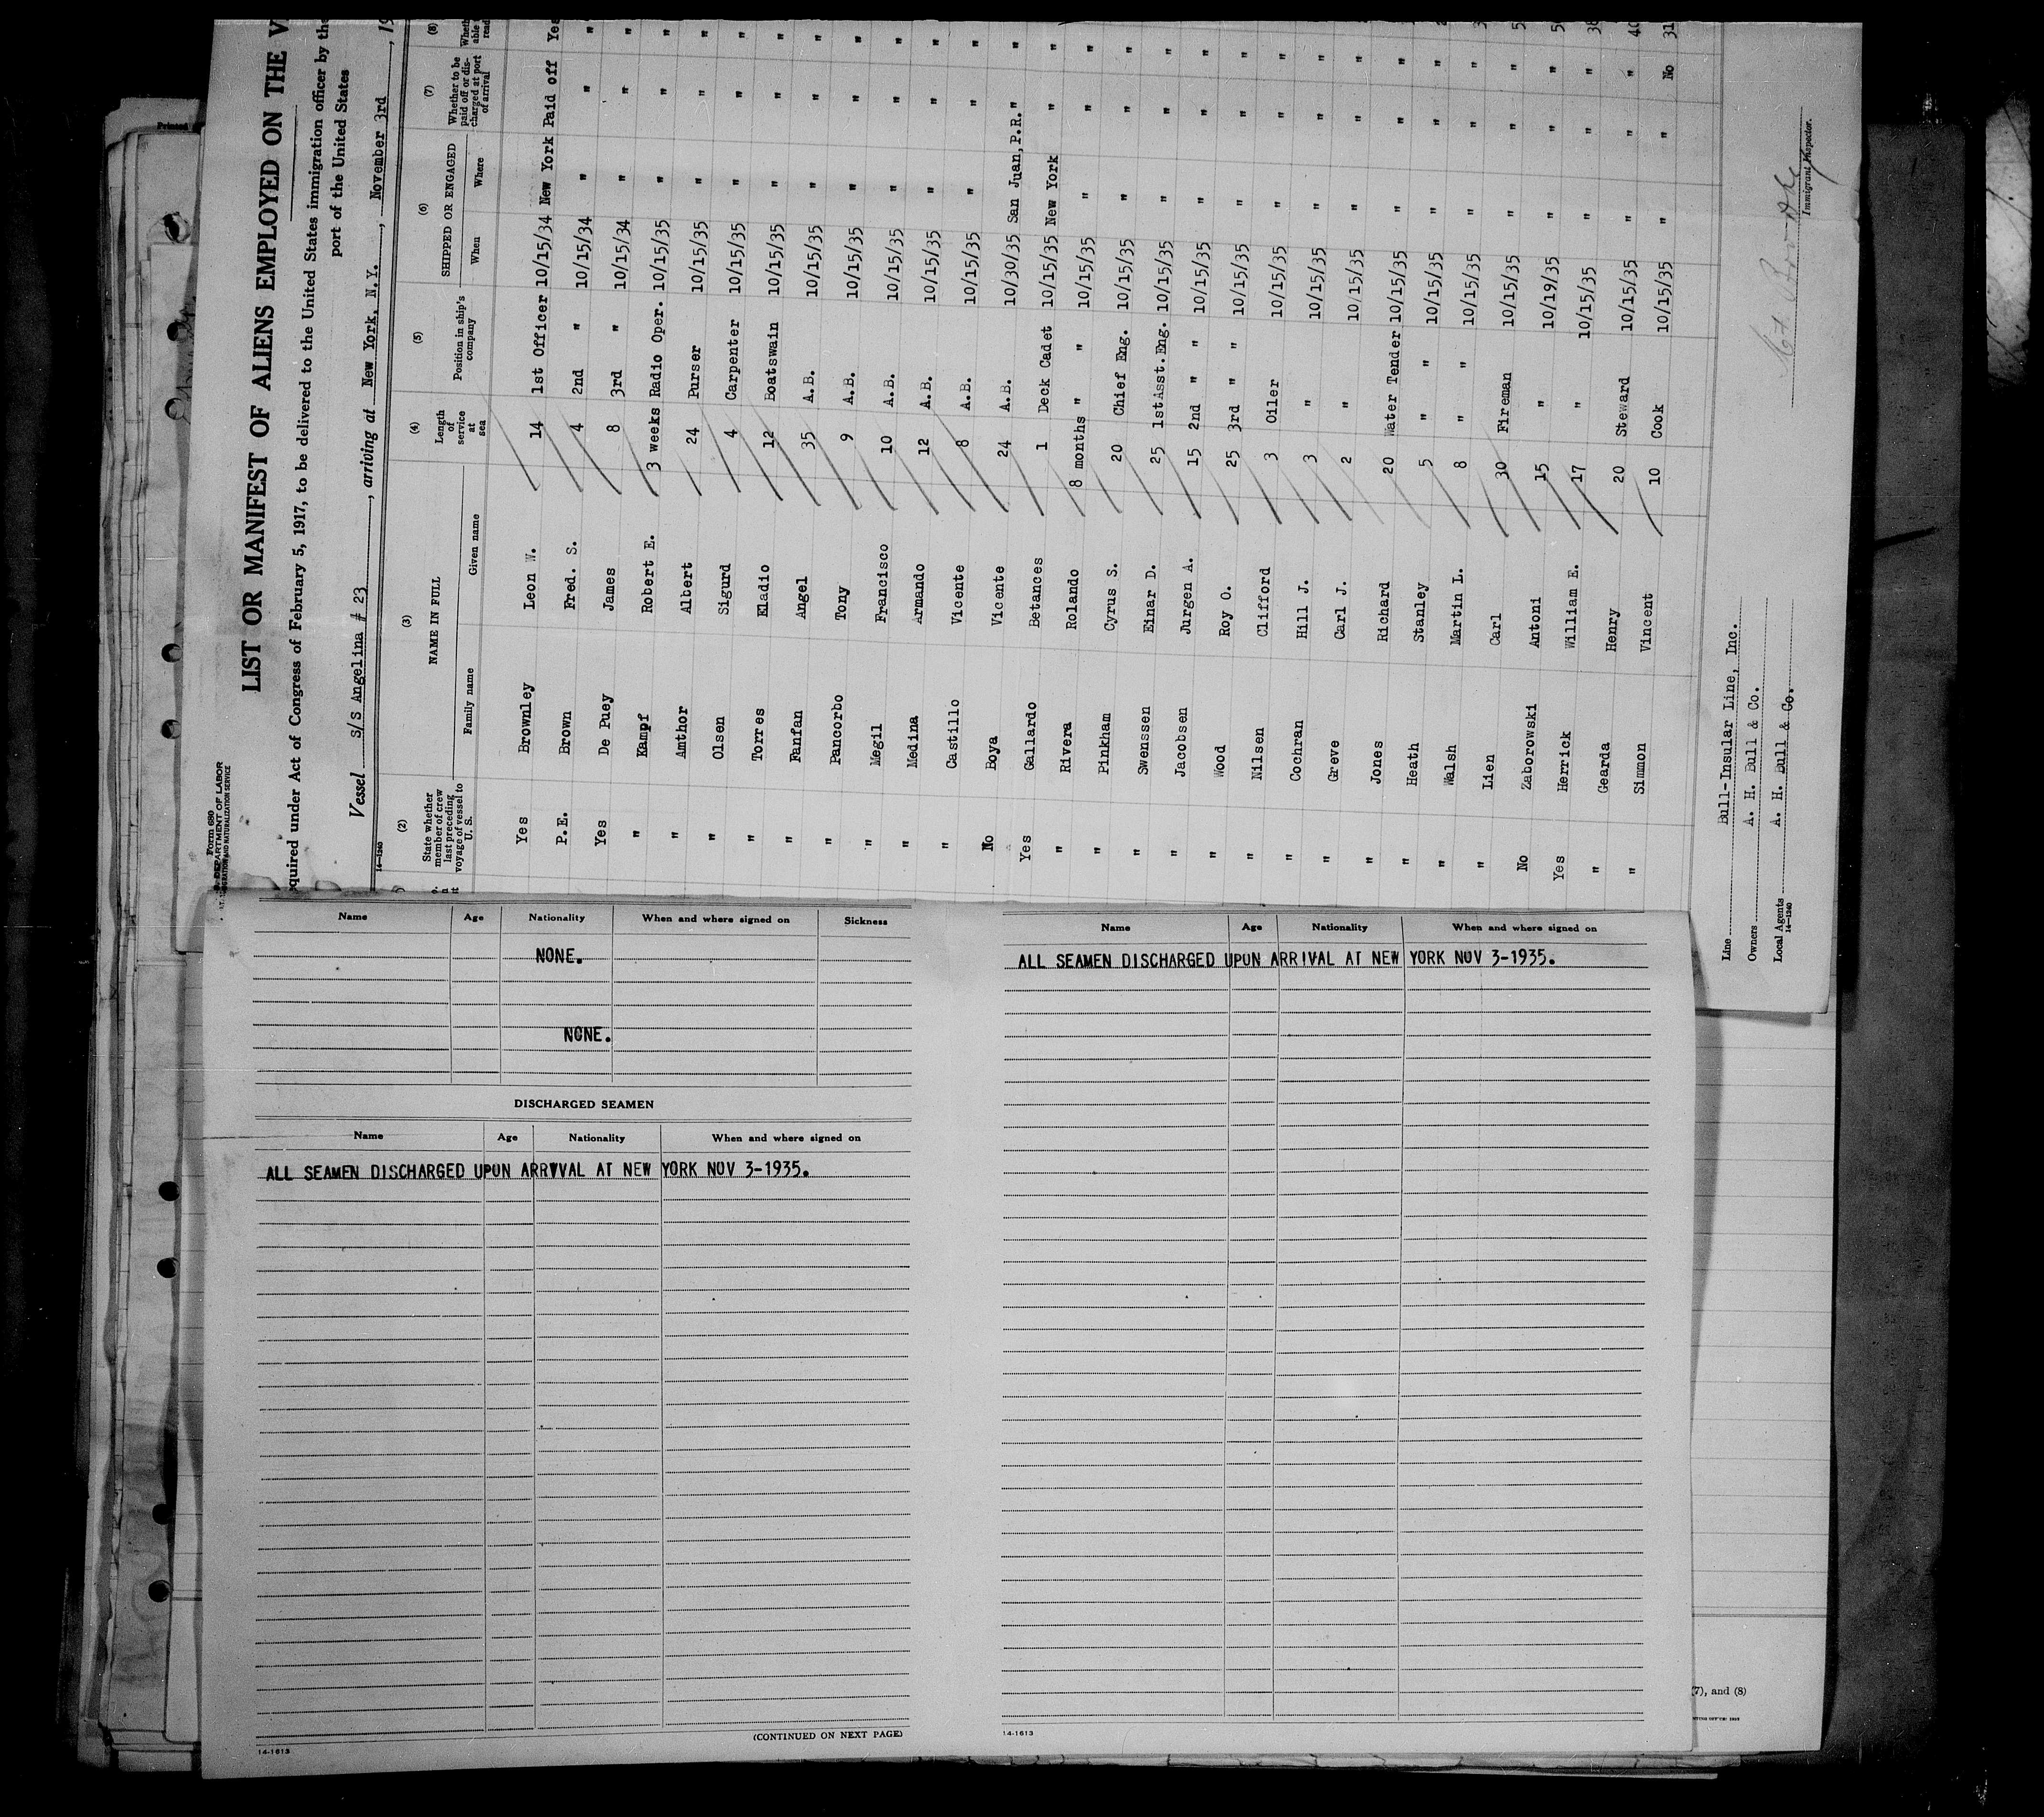 Form 680
U.S. DEPARTMENT OF LABOR
IMMIGRATION AND NATURALIZATION SERVICE
LIST OR MANIFEST OF ALIENS EMPLOYED ON THE
quired under Act of Congress of February 5, 1917, to be delivered to the United States immigration officer by the
port of the United States
Vessel S/S Angelina # 23, arriving at New York, N.Y., November 3rd, 19
14-1240
(2) (3) (4) (5) (6) (7) (8)
State whether member of crew last preceding voyage of vessel to U. S.
NAME IN FULL
Family name Given name
Length of service at sea
Position in ship's company
SHIPPED OR ENGAGED
When Where
Whether to be paid off or discharged at port of arrival
Yes Brownley Leon W. 14 1st Officer 10/15/34 New York Paid off Yes
P.E. Brown Fred. S. 4 2nd " 10/15/34 " " "
Yes De Puey James 8 3rd " 10/15/34 " " "
" Kampf Robert E. 3 weeks Radio Oper. 10/15/35 " " "
" Amthor Albert 24 Purser 10/15/35 " " "
" Olsen Sigurd 4 Carpenter 10/15/35 " " "
" Torres Eladio 12 Boatswain 10/15/35 " " "
" Fanfan Angel 35 A.B. 10/15/35 " " "
" Pancorbo Tony 9 A.B. 10/15/35 " " "
" Megil Francisco 10 A.B. 10/15/35 " " "
" Medina Armando 12 A.B. 10/15/35 " " "
" Castillo Vicente 8 A.B. 10/15/35 " " "
No Boya Vicente 24 A.B. 10/30/35 San Juan, P.R. " "
Yes Gallardo Betances 1 Deck Cadet 10/15/35 New York " "
" Rivera Rolando 8 months " " 10/15/35 " " "
" Pinkham Cyrus S. 20 Chief Eng. 10/15/35 " " "
" Swenssen Einar D. 25 1st Asst. Eng. 10/15/35 " " "
" Jacobsen Jurgen A. 15 2nd " " 10/15/35 " " "
" Wood Roy O. 25 3rd " " 10/15/35 " " "
" Nilsen Clifford 3 Oiler 10/15/35 " " "
" Cochran Hill J. 3 " 10/15/35 " " "
" Greve Carl J. 2 " 10/15/35 " " "
" Jones Richard 20 Water Tender 10/15/35 " " "
" Heath Stanley 5 " " 10/15/35 " " "
" Walsh Martin L. 8 " " 10/15/35 " " "
" Lien Carl 30 Fireman 10/15/35 " " "
No Zaborowski Antoni 15 " 10/19/35 " " "
Yes Herrick William E. 17 " 10/15/35 " " "
" Gearda Henry 20 Steward 10/15/35 " " "
" Simmon Vincent 10 Cook 10/15/35 " " No
Line Bull-Insular Line, Inc.
Owners A. H. Bull & Co.
Local Agents A. H. Bull & Co.
14-1240
Immigrant Inspector.
Name Age Nationality When and where signed on Sickness
NONE.
NONE.
DISCHARGED SEAMEN
Name Age Nationality When and where signed on
ALL SEAMEN DISCHARGED UPON ARRVVAL AT NEW YORK NOV 3-1935.
(CONTINUED ON NEXT PAGE)
14-1613
Name Age Nationality When and where signed on
ALL SEAMEN DISCHARGED UPON ARRIVAL AT NEW YORK NOV 3-1935.
14-1613
(7), and (8)